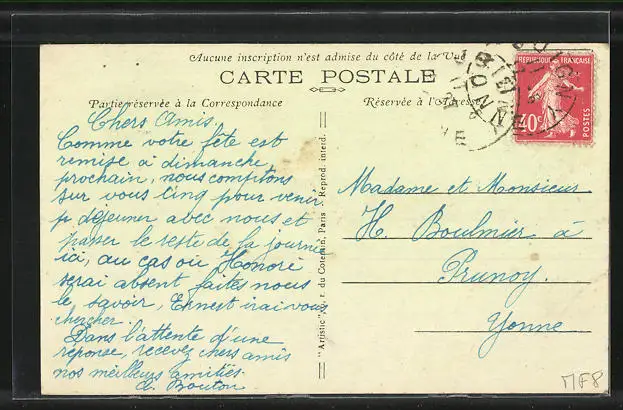 Aucune inscription n'est admise du côté de la Vue
CARTE POSTALE
Partie réservée à la Correspondance
Réservée à l'Adresse
REPUBLIQUE FRANÇAISE
40c
POSTES
YONNE
Chers Amis,
Comme votre fête est
remise à dimanche
prochain, nous comptons
sur vous cinq pour venir
déjeuner avec nous et
passer le reste de la journée
ici, au cas où Honoré
serai absent faites nous
le savoir, Ernest irai vous
chercher
Dans l'attente d'une
réponse, recevez chers amis
nos meilleurs amitiés
Bouton
"Artistic" r. du Colombin, Paris - Reprod. interd.
Madame et Monsieur
H. Boulmier à
Prunoy.
Yonne
MF8